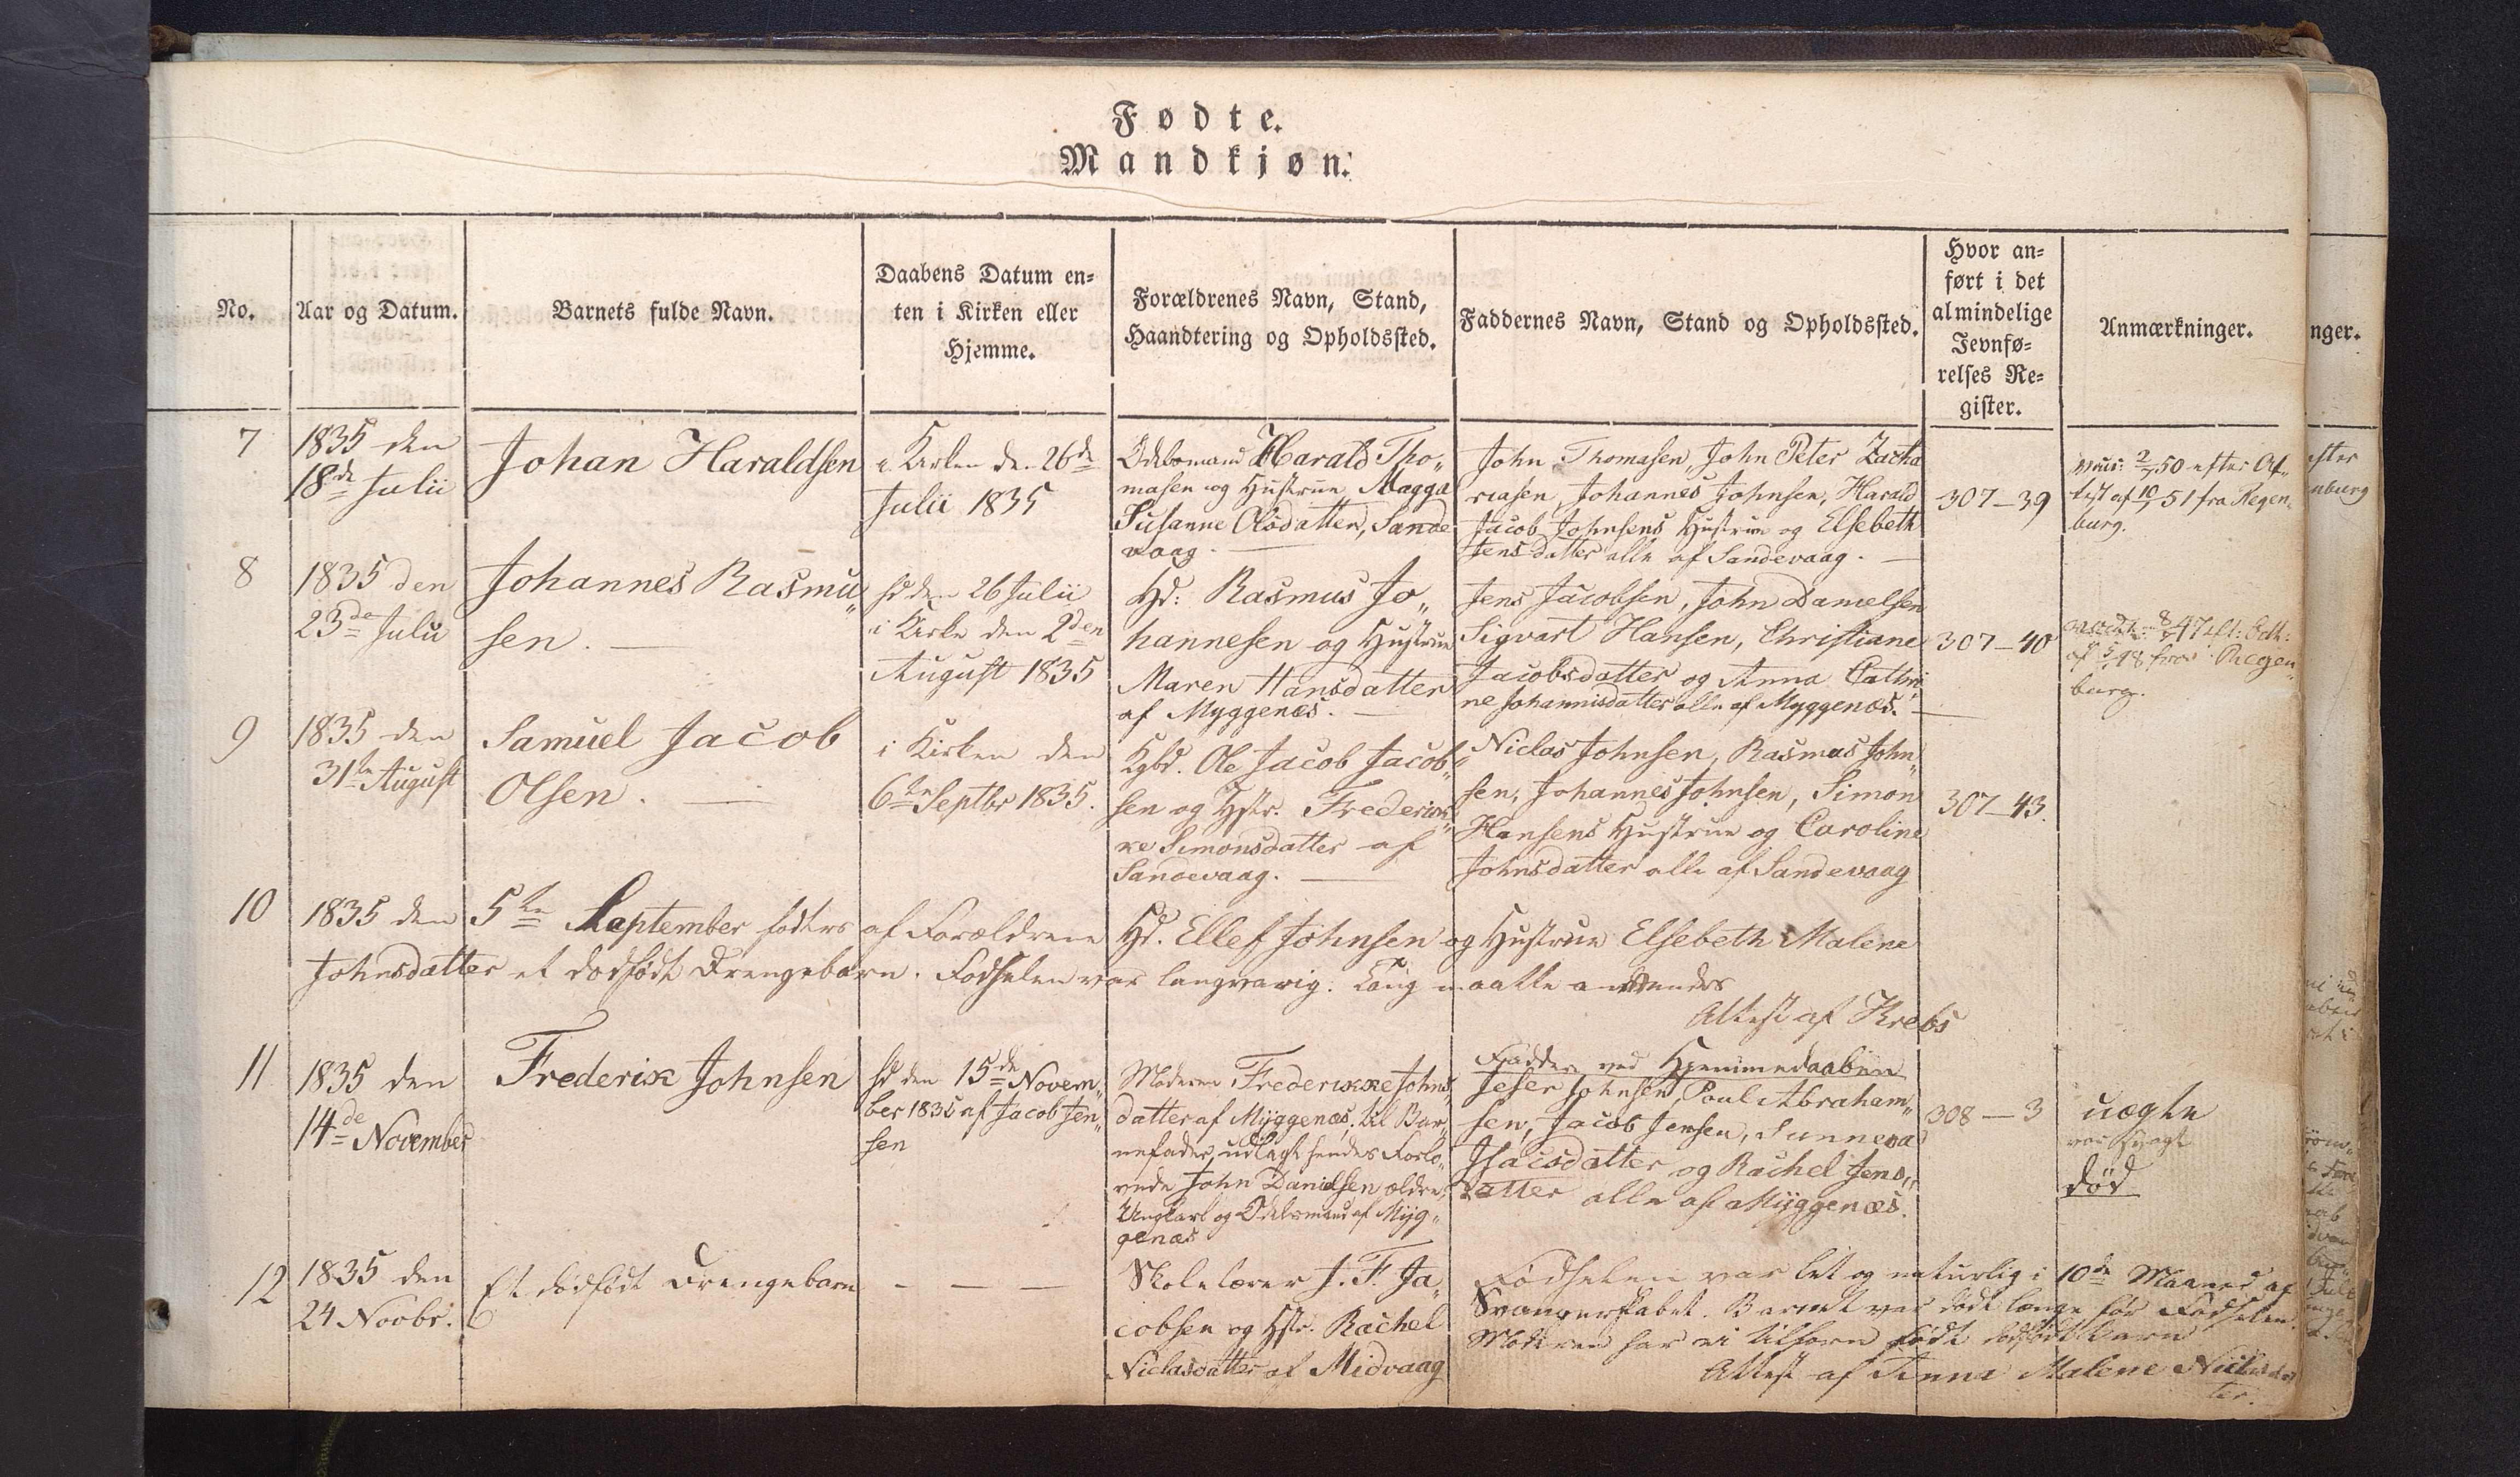 Fødte.
Mandkjøn.
No.
Aar og Datum.
Barnets fulde Navn.
Daabens Datum en-
ten i Kirken eller
Hjemme.
Forældrenes Navn, Stand,
Haandtering og Opholdssted.
Faddernes Navn, Stand og Opholdssted.
Hvor an-
ført i det
almindelige
Jevnfø-
relses Re-
gister.
Anmærkninger.
nger.
7
1835 den
18de Julii
Johan Haraldsen
i Kirken den 26de
Julii 1835
Odelsmand Harald Tho„
masen og Hustrue Magga
Susanne Olsdatter, Sande
vaag.
John Thomasen, John Peter Zacha
riasen, Johannes Johnsen, Harald
Jacob Johnsens Hustrue og Elsebeth
Jensdatter alle af Sandevaag.
307-39
50 efter At„
test af 51 fra Regen„
burg.
8
1835 den
23de Julii
Johannes Rasmu„
sen.
hd den 26 Julii
i Kirke den 2den
August 1835
Hd: Rasmus Jo„
hannesen og Hustrue
Maren Hansdatter
af Myggenæs.
Jens Jacobsen, John Danielsen
Sigvart Hansen, Christiane
Jacobsdatter og Anna Cathri
ne Johannisdatter alle af Myggenæs.
307-40
47 eft:
48 fra Regen„
burg.
9
1835 den
31te August
Samuel Jacob
Olsen.
i Kirken den
6te Septbr 1835.
Kgbd. Ole Jacob Jacob„
sen og Hstr. Frederik„
ke Simonsdatter af
Sandevaag.
Niclas Johnsen, Rasmus John„
sen, Johannes Johnsen, Simon
Hansens Hustrue og Caroline
Johnsdatter alle af Sandevaag
307-43.
10
1835 den 5te September fødtes af Forældrene Hd. Ellef Johnsen og Hustrue Elsebeth Malene
Johnsdatter et dødfødt Drengebarn. Fødselen var langvarig. Tang maatte anvendes
Attest af Krebs
11
1835 den
14de November
Frederik Johnsen
hd den 15de Novem„
ber 1835 af Jacob Jen„
sen
Moderen Frederikke Johns„
datter af Myggenæs, til Bar„
nefader udlagt hendes Forlo„
vede John Danielsen ældre,
Ungkarl og Odelsmand af Myg„
genæs
Faddere ved Hjemmedaaben
Johnsen, Poul Abraham„
sen, Jacob Jensen, Sunneva
Isacsdatter og Rachel Jens„
datter alle af Myggenæs.
308-3
uægte
død
12
1835 den
24 Novbr.
Et dødfødt Drengebarn
Skolelærer J. F. Ja„
cobsen og Hstr. Rachel
Niclasdatter af Midvaag
Fødselen var let og naturlig i 10de Maaned af
Svangerskabet. Barnet var dødt længe før Fødselen.
Moderen har ei tilforn født dødfødt barn
Attest af Anna Malene Niclasdat
ter.